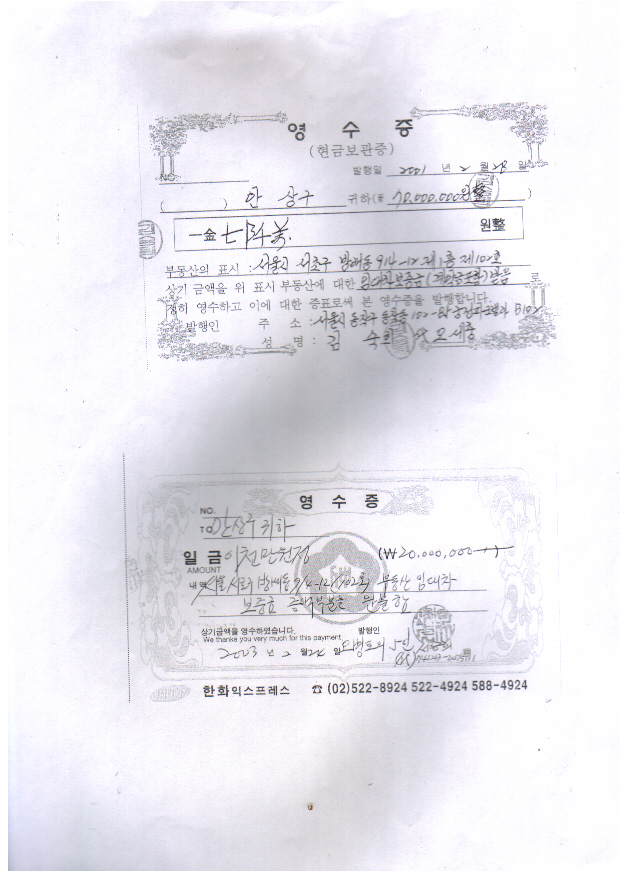 영 수 증
(현금보관증)
NO.
발행일 2001 년 2 월 28 일
( ) 안 상구 귀하(# 70,000,000원整 )
一金 七阡萬 원整
부동산의 표시 : 서울시 서초구 방배동 914-12 제1층 제102호
상기 금액을 위 표시 부동산에 대한 임대차보증금(계약금포함)받음 로
정히 영수하고 이에 대한 증표로써 본 영수증을 발행합니다.
발행인 주 소 : 서울시 동작구 102- B102
성 명 : 김 숙
영 수 증
NO.
TO 안상구 귀하
일 금 이천만원정 (₩20,000,000-)
AMOUNT
내 역 서울 서초구 방배동 914-12, 102호 부동산 임대차
보증금 증액부분을
상기금액을 영수하였습니다. 발행인
We thanke you very much for this payment
2003 년 2 월 24 일
한화익스프레스 ☎ (02)522-8924 522-4924 588-4924